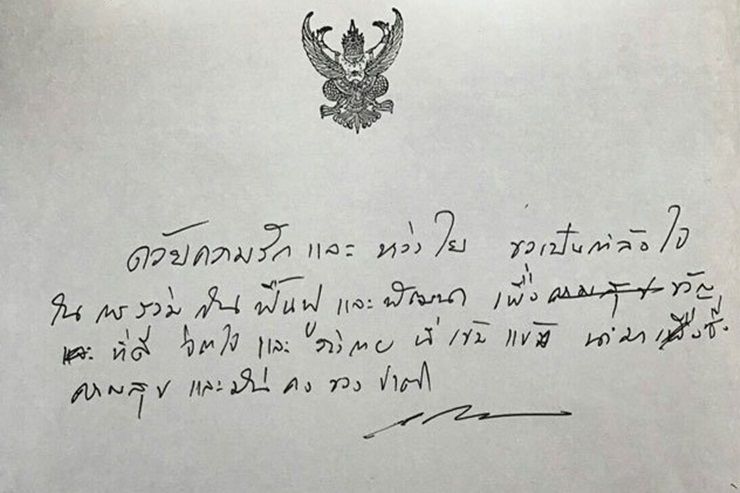 ด้วยความรัก และ ห่วงใย ขอเป็นกำลังใจ
ในการร่วมกันฟื้นฟู และพัฒนา เพื่อความสุข ขวัญ
และ ที่ดี จิตใจ และ ร่างกาย ที่ เข้มแข็ง นำมาซึ่ง
ความสุข และมั่นคง ของ ชาติ